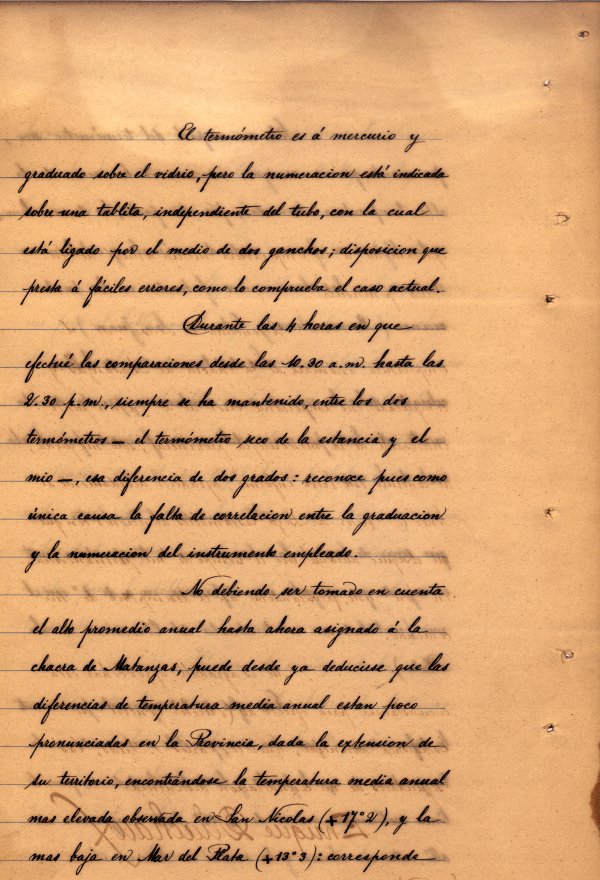 El termómetro es á mercurio y
graduado sobre el vidrio, pero la numeracion está indicada
sobre una tablita, independiente del tubo, con la cual
está ligado por el medio de dos ganchos; disposicion que
presta á fáciles errores, como lo comprueba el caso actual.
Durante las 4 horas en que
efectué las comparaciones desde las 10.30 a.m. hasta las
2.30 p.m., siempre se ha mantenido, entre los dos
termómetros — el termómetro seco de la estancia y el
mio —, esa diferencia de dos grados: reconoce pues como
única causa la falta de correlacion entre la graduacion
y la numeracion del instrumento empleado.
No debiendo ser tomado en cuenta
el alto promedio anual hasta ahora asignado á la
chacra de Matanzas, puede desde ya deducirse que las
diferencias de temperatura media anuel estan poco
pronunciadas en la Provincia, dada la extension de
su territorio, encontrándose la temperatura media anual
mas elevada observada en San Nicolas (+17°2), y la
mas baja en Mar del Plata (+13°3): corresponde